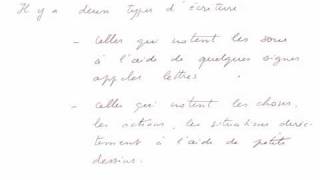 Il y a deux types d'écriture
- Celles qui notent les sons
à l'aide de quelques signes
appelés lettres
- Celles qui notent les choses,
les actions, les situations direc-
tement à l'aide de petits
dessins.